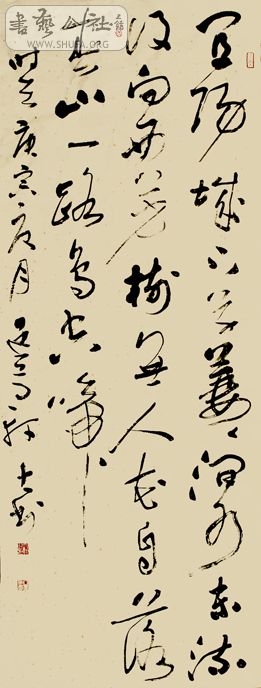 書藝公社
WWW.SHUFA.ORG
宜陽城下草萋々澗水東流
復向西芳樹無人花自落
春山一路鳥空啼
時在庚寅夏月